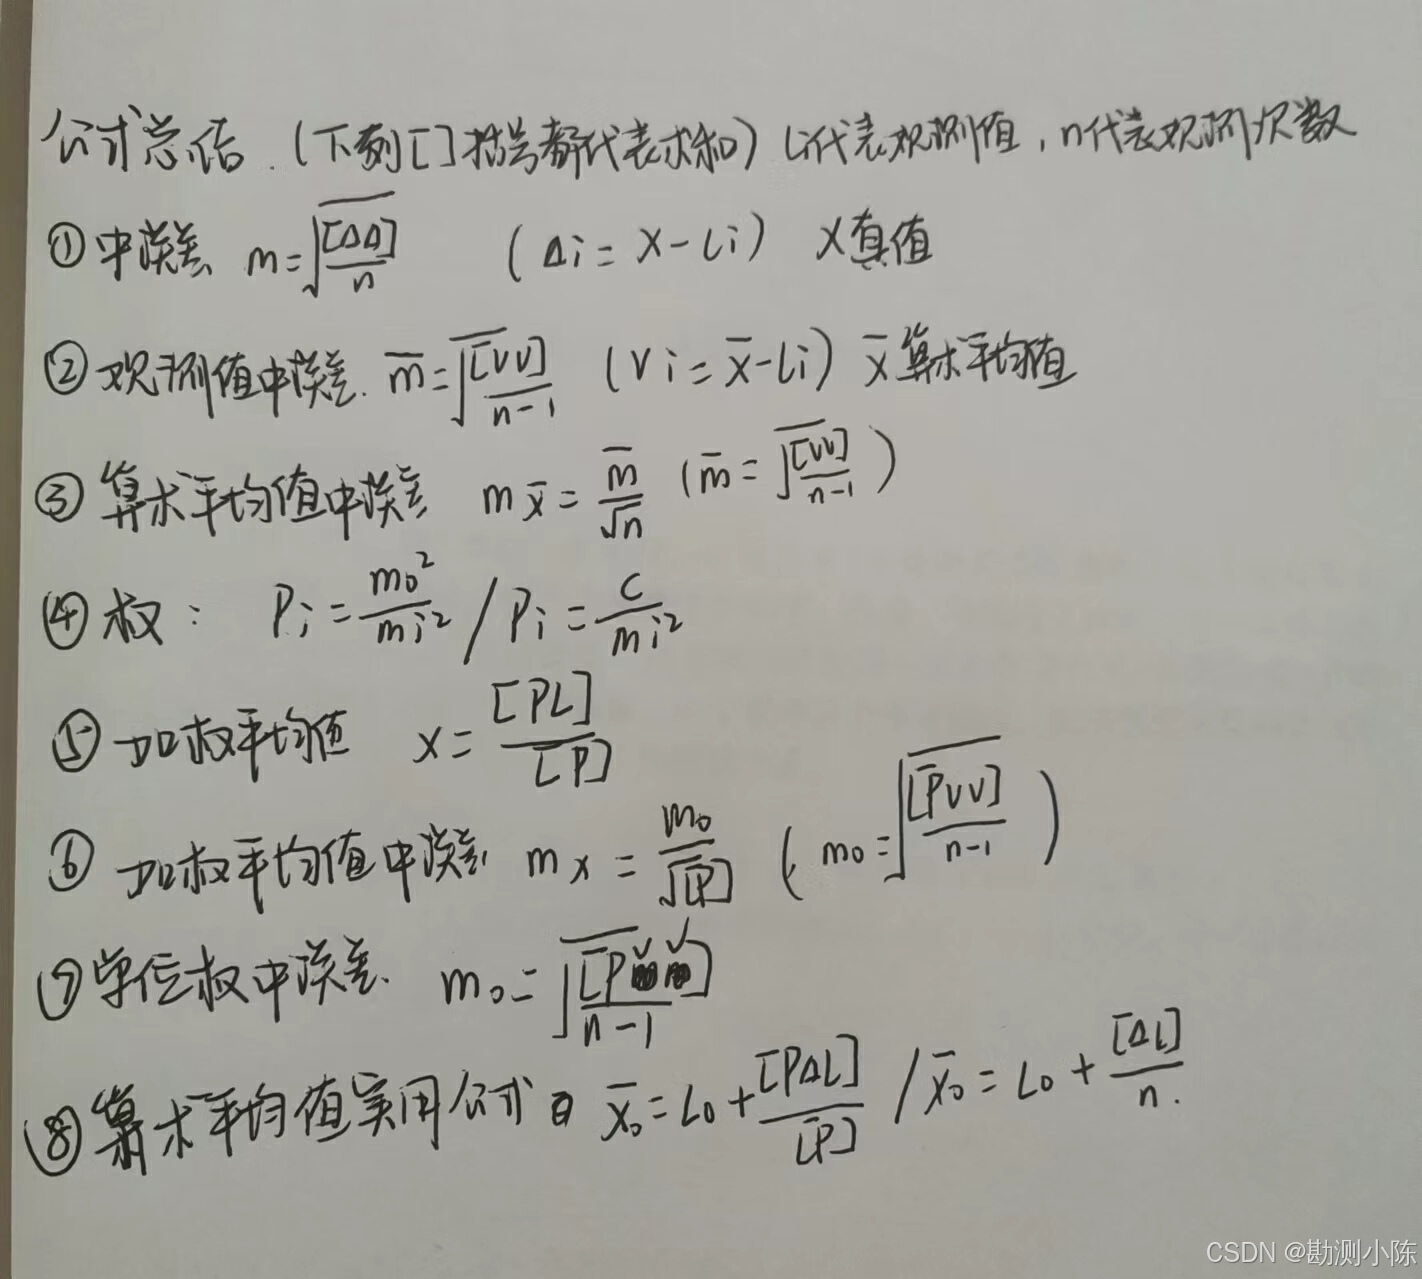 公式总结.(下列[]括号都代表求和) Li代表观测值,n代表观测次数
① 中误差 m=√([ΔΔ]/n) (Δi=X-Li) X真值
② 观测值中误差. m̅=√([VV]/(n-1)) (Vi=x̅-Li) x̅算术平均值
③ 算术平均值中误差 mx̅=m̅/√n (m̅=√([VV]/(n-1)))
④ 权: Pi=m₀²/mi² / Pi=C/mi²
⑤ 加权平均值 x=[PL]/[P]
⑥ 加权平均值中误差 mx=m₀/√[P] (m₀=√([PVV]/(n-1)))
⑦ 单位权中误差. m₀=√([PVV]/(n-1))
⑧ 算术平均值实用公式 x̅₀=L₀+[PΔL]/[P] / x̅₀=L₀+[ΔL]/n.
CSDN @勘测小陈